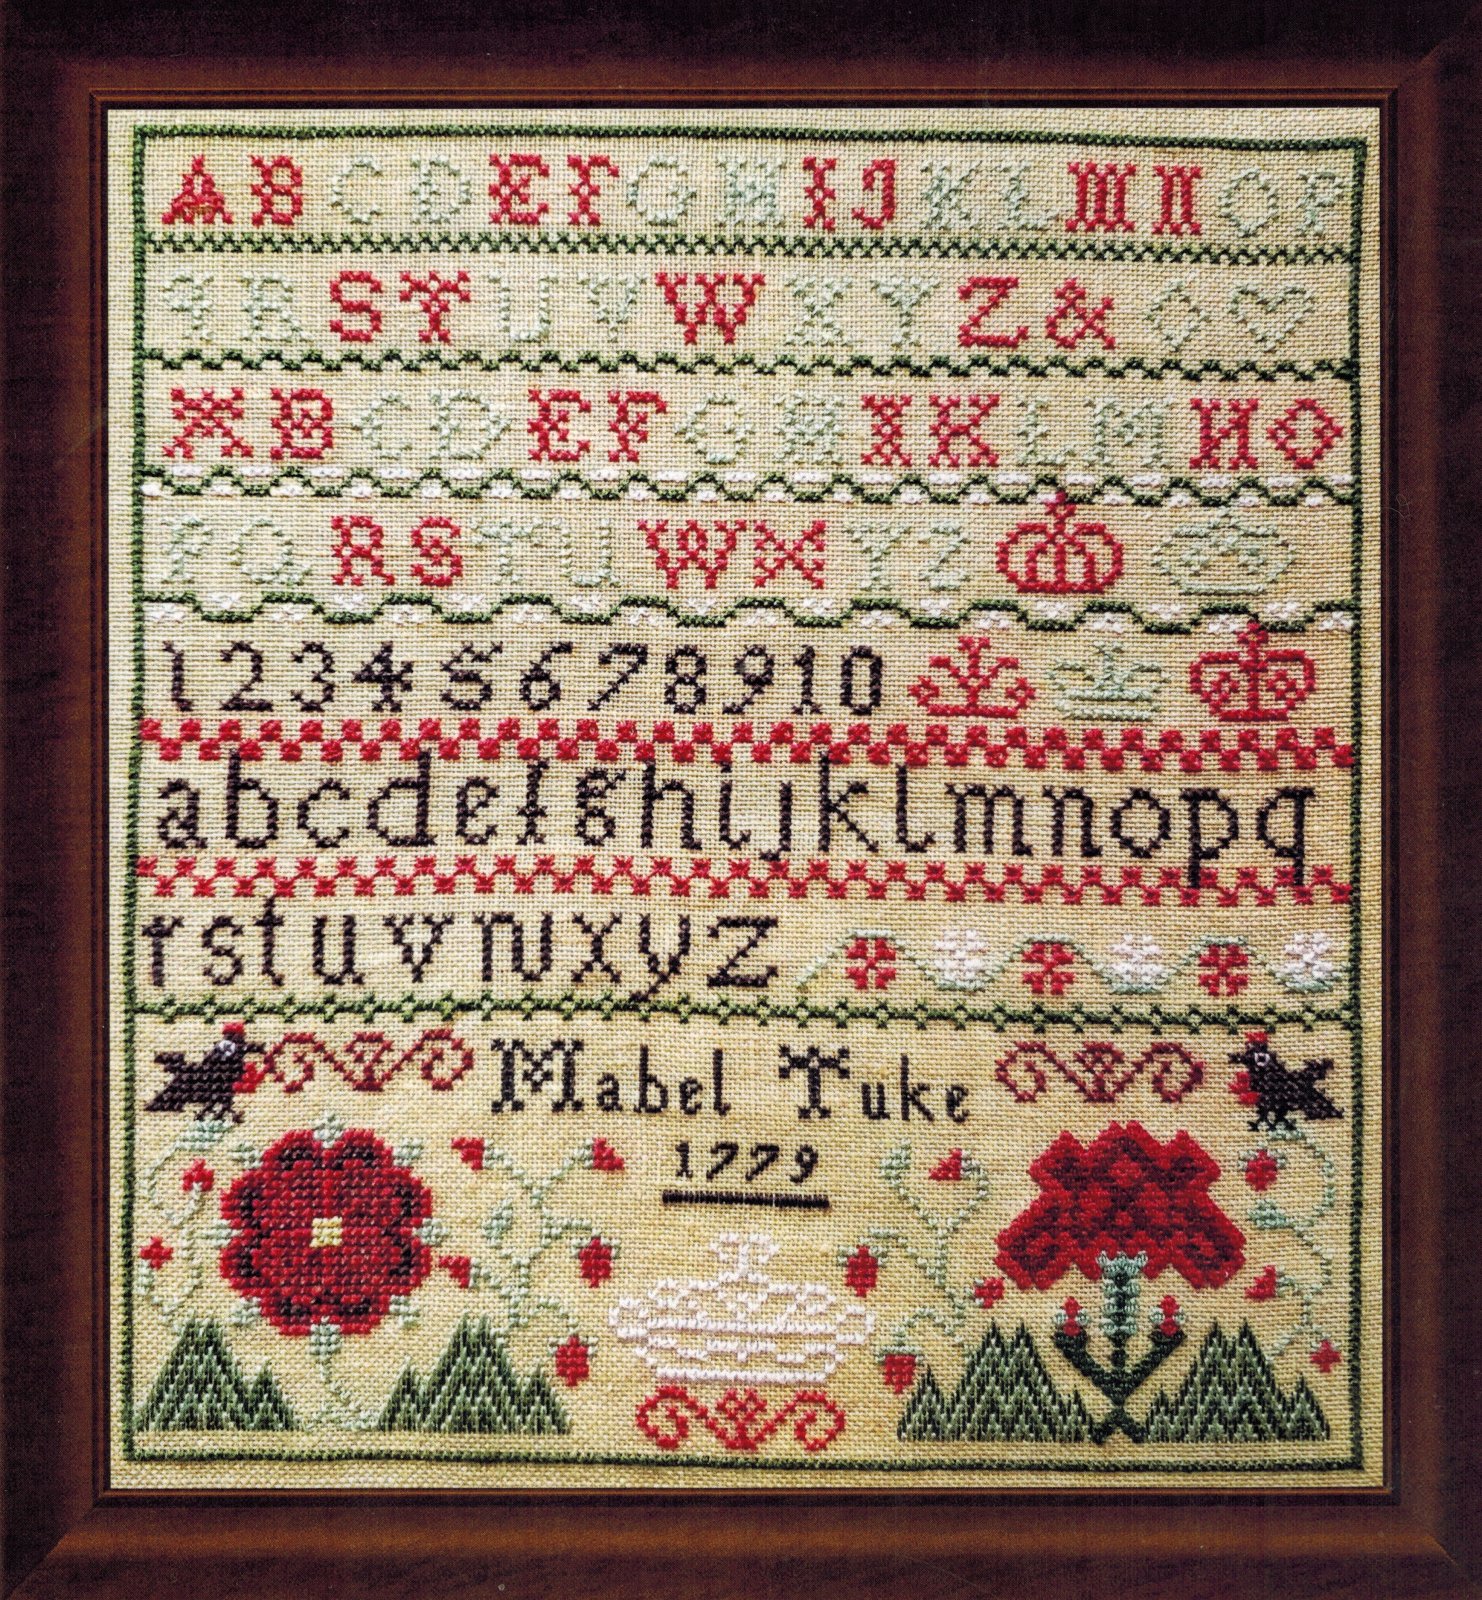 ABCDEFGHIJKLMNOP
QRSTUVWXYZ&
ABCDEFGHIKLMNO
PQRSTUWXYZ
12345678910
abcdefghijklmnopq
rstuvwxyz
Mabel Tuke
1779